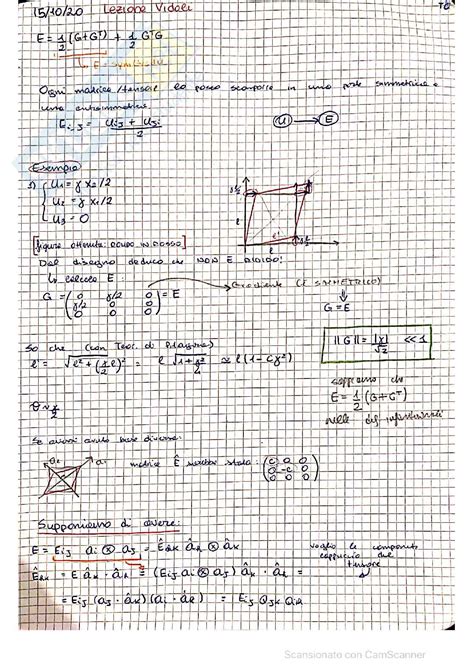 15/10/20 Lezione Vidoli
E = 1/2 (G+Gᵀ) + 1/2 GᵀG
Ogni matrice/tensore lo posso scomporre in una parte simmetrica e
una antisimmetrica
E i,j = (u i,j + u j,i)/2
u → E
Esempio
1) { u1 = γ x2/2
u2 = γ x1/2
u3 = 0
[figura ottenuta: ROMBO IN ROSSO]
Dal disegno deduco che NON È RIGIDO!
↳ calcolo E:
G = (0 γ/2 0
γ/2 0 0
0 0 0) = E
Gradiente (è SIMMETRICO)
⇓
G = E
So che (con Teor. di Pitagora)
l' = √(l² + (γ/2 l)²) = l √(1+γ²/4) ≃ l (1 - cγ²)
||G|| = |γ|/√2 << 1
sappiamo che
E = 1/2 (G+Gᵀ)
nelle def infinitesimali
θ ≈ γ/2
Se avessi avuto base diversa:
matrice Ê sarebbe stata: (c 0 0
0 -c 0
0 0 0)
Supponiamo di avere:
E = Eij ai ⊗ aj = Êhk âh ⊗ âk
voglio le componenti
cappuccio del
tensore
Êhk = E âk · âh = (Eij ai ⊗ aj) âk · âh =
= Eij (aj · âk)(ai · âh) = Eij Qjk Qih
Scansionato con CamScanner